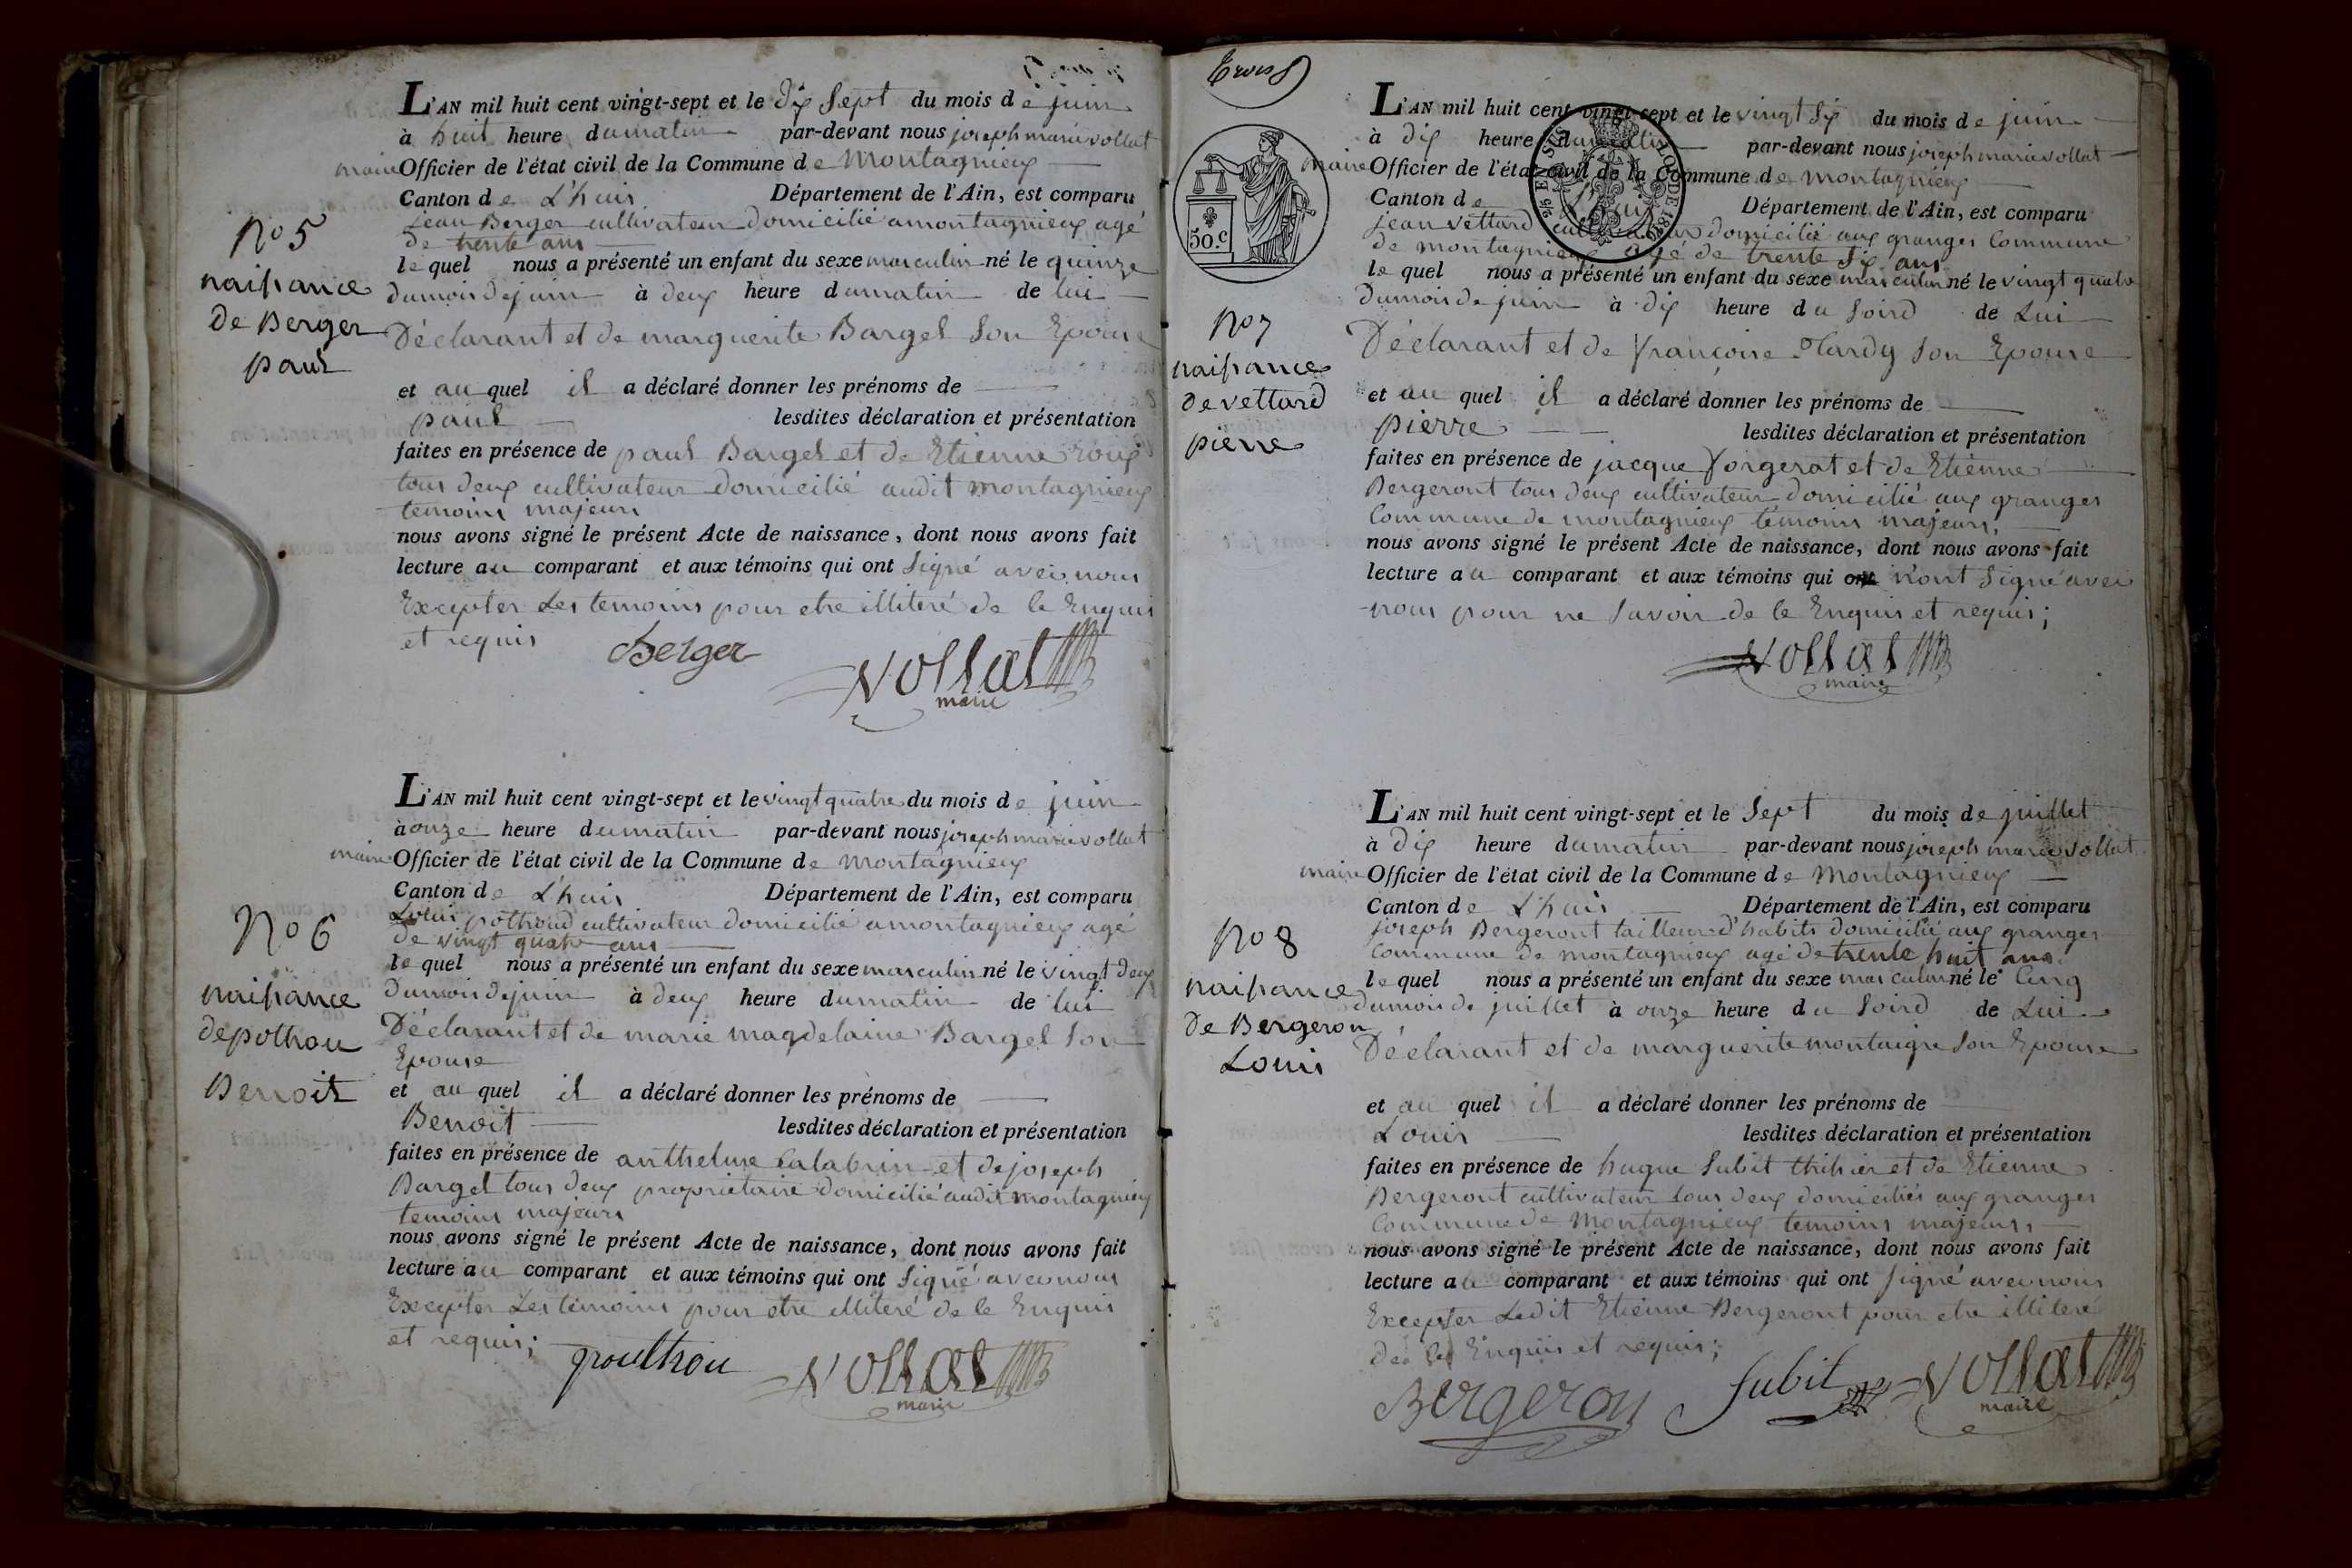 L'AN mil huit cent vingt-sept et le dix sept du mois de juin
à huit heure du matin par-devant nous joseph marie vollat
maire Officier de l'état civil de la Commune de Montagnieux
Canton de L'huis Département de l'Ain, est comparu
jean Berger cultivateur domicilié a montagnieux agé
de trente ans
le quel nous a présenté un enfant du sexe masculin né le quinze
du mois de juin à deux heure du matin de lui
Déclarant et de marguerite Barget son Epouse
et au quel il a déclaré donner les prénoms de
paul lesdites déclaration et présentation
faites en présence de paul Barget et de Etienne roux
tous deux cultivateur domicilié audit montagnieux
temoins majeurs
nous avons signé le présent Acte de naissance, dont nous avons fait
lecture au comparant et aux témoins qui ont signé avec nous
Excepter Les temoins pour etre illiteré de le Enquis
et requis
Berger
vollat
maire
No 5
naissance
de Berger
paul
L'AN mil huit cent vingt-sept et le vingt quatre du mois de juin
à onze heure du matin par-devant nous joseph marie vollat
maire Officier de l'état civil de la Commune de montagnieux
Canton de L'huis Département de l'Ain, est comparu
Louis pothoud cultivateur domicilié a montagnieux agé
de vingt quatre ans
le quel nous a présenté un enfant du sexe masculin né le vingt deux
du mois de juin à deux heure du matin de lui
Déclarant et de marie magdelaine Barget son
Epouse
et au quel il a déclaré donner les prénoms de
Benoit lesdites déclaration et présentation
faites en présence de anthelme Calabrin et de joseph
Barget tous deux proprietaire domicilié audit montagnieux
temoins majeurs
nous avons signé le présent Acte de naissance, dont nous avons fait
lecture au comparant et aux témoins qui ont signé avec nous
Excepter Les temoins pour etre illiteré de le Enquis
et requis;
pouthou
vollat
maire
No 6
naissance
de pothou
Benoit
trois
50.c
L'AN mil huit cent vingt-sept et le vingt six du mois de juin
à dix heure du matin par-devant nous joseph marie vollat
maire Officier de l'état civil de la Commune de montagnieux
Canton de L'huis Département de l'Ain, est comparu
jean vettard cultivateur domicilié aux granges Commune
de montagnieux agé de trente six ans
le quel nous a présenté un enfant du sexe masculin né le vingt quatre
du mois de juin à dix heure du soird de Lui
Déclarant et de françoise hardy son Epouse
et au quel il a déclaré donner les prénoms de
pierre lesdites déclaration et présentation
faites en présence de jacque forgerat et de Etienne
Bergeront tous deux cultivateur domicilié aux granges
Commune de montagnieux témoins majeurs,
nous avons signé le présent Acte de naissance, dont nous avons fait
lecture au comparant et aux témoins qui n'ont signé avec
nous pour ne savoir de le Enquis et requis;
vollat
maire
No 7
naissance
de vettard
pierre
L'AN mil huit cent vingt-sept et le sept du mois de juillet
à dix heure du matin par-devant nous joseph marie vollat
maire Officier de l'état civil de la Commune de Montagnieux
Canton de L'huis Département de l'Ain, est comparu
joseph Bergeront tailleur d'habits domicilié aux granges
Commune de montagnieux agé de trente huit ans
le quel nous a présenté un enfant du sexe masculin né le Cinq
du mois de juillet à onze heure du soird de Lui
Déclarant et de marguerite montaigre son Epouse
et au quel il a déclaré donner les prénoms de
Louis lesdites déclaration et présentation
faites en présence de hugue Subit et de Etienne
Bergeront cultivateur tous deux domiciliés aux granges
Commune de Montagnieux temoins majeurs,
nous avons signé le présent Acte de naissance, dont nous avons fait
lecture au comparant et aux témoins qui ont signé avec nous
Excepter Ledit Etienne Bergeront pour etre illiteré
de le Enquis et requis;
Bergeron
Subit
vollat
maire
No 8
naissance
De Bergeron
Louis